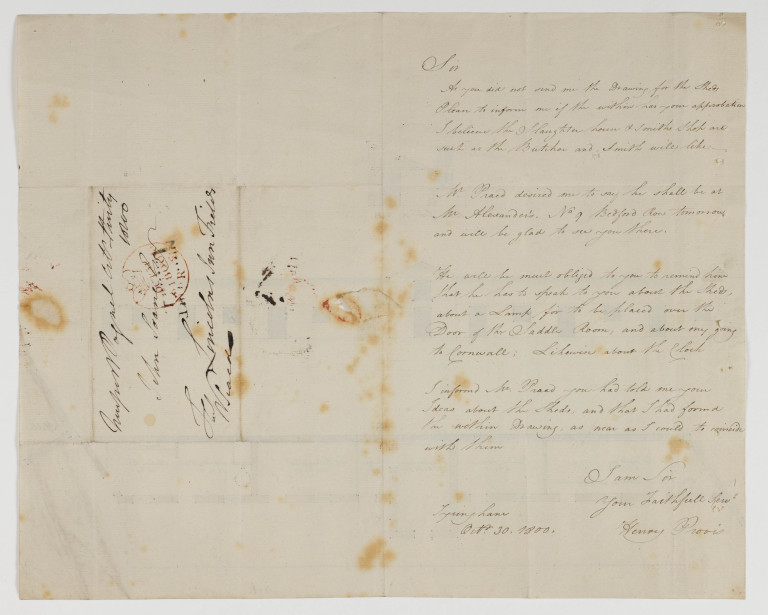 Sir
As you did not send me the Drawing for the Sheds
Please to inform me if the within has your approbation
I believe the Slaughter house & Smiths Shop are
such as the Butcher and Smith will like
Mr Praed desired me to say he shall be at
Mr Alexander's, No 9 Bedford Row tomorrow
and will be glad to see you there.
He will be much obliged to you to remind him
that he has to speak to you about the Sheds,
about a Lamp for to be placed over the
Door of the Saddle Room, and about my going
to Cornwall; Likewise about the Clock
I informd Mr Praed you had told me your
Ideas about the Sheds, and that I had formd
the within Drawing as near as I could to coincide
with them
I am Sir
Your Faithfull Servt
Henry Provis
Tyringham
Octr 30. 1800.
Newport Pagnel Octr thirty
1800
John Soane
Lincolns Inn Fields